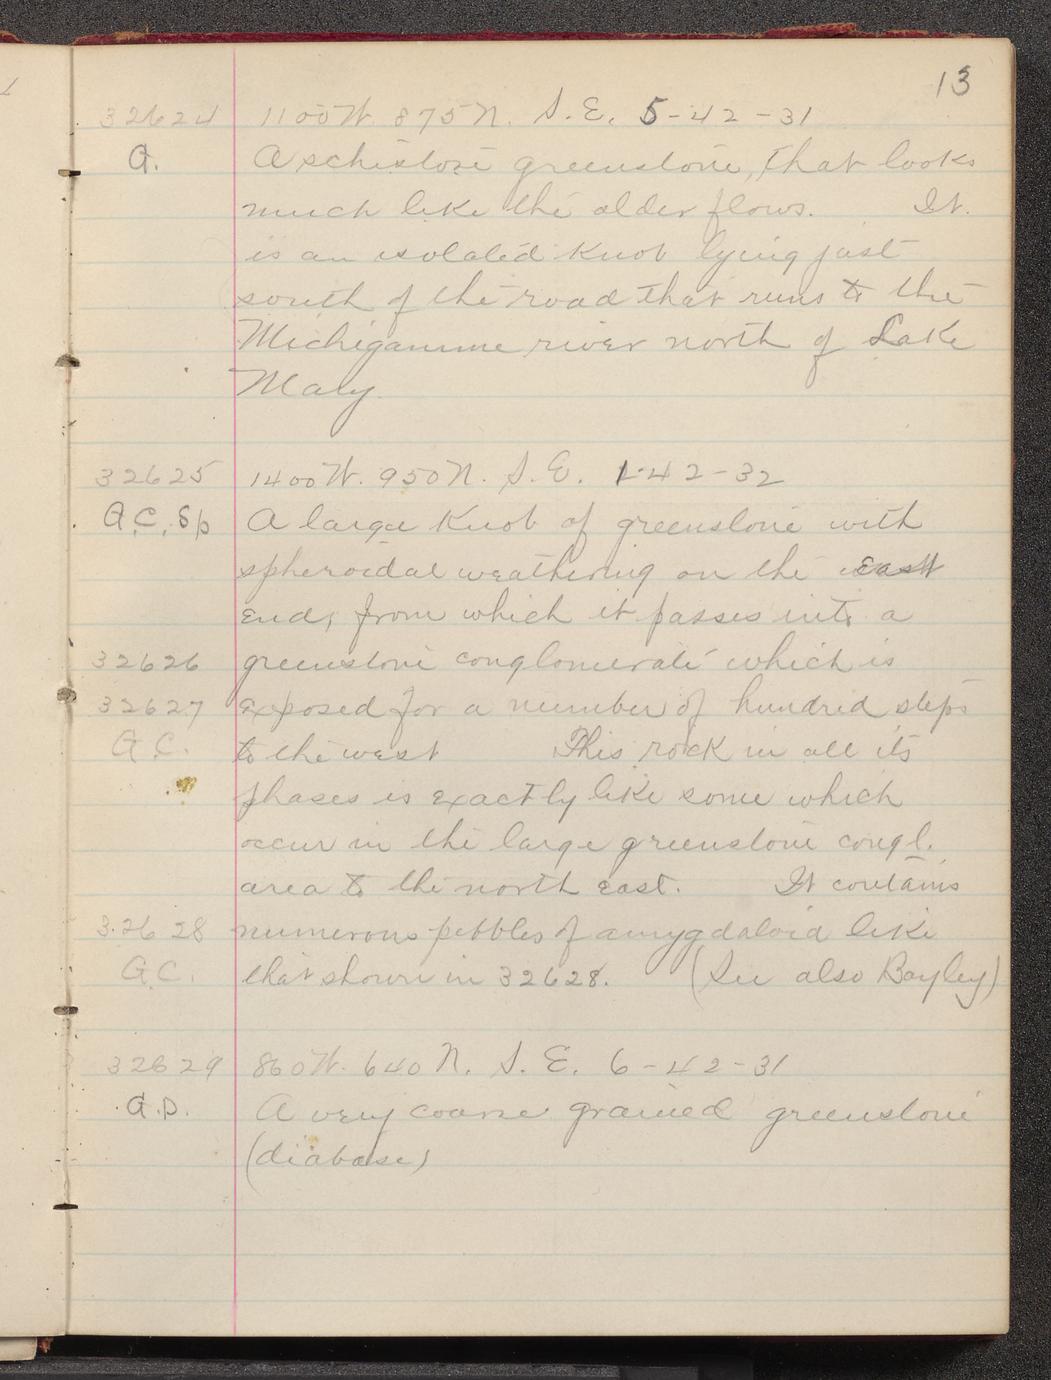 13
32624 1100 W. 875 N. S.E. 5-42-31
G. A schistose greenstone, that looks
much like the older flows. It.
is an isolated knob lying just
south of the road that runs to the
Michigamme river north of Lake
Mary.
32625 1400 W. 950 N. S.E. 1-42-32
G.C. Sp A large knob of greenstone with
spheroidal weathering on the east
end, from which it passes into a
32626 greenstone conglomerate which is
32627 exposed for a number of hundred steps
G.C. to the west This rock in all its
phases is exactly like some which
occur in the large greenstone congl.
area to the north east. It contains
32628 numerous pebbles of amygdaloid like
G.C. that shown in 32628. (See also Bayley)
32629 860 W. 640 N. S.E. 6-42-31
G.D. A very coarse grained greenstone
(diabase)